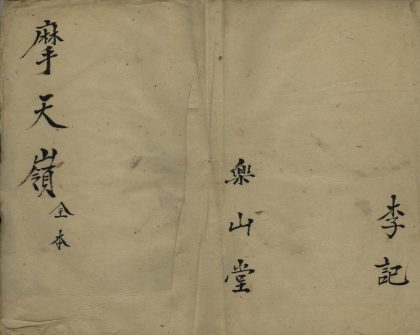 李記
樂山堂
摩天嶺全本